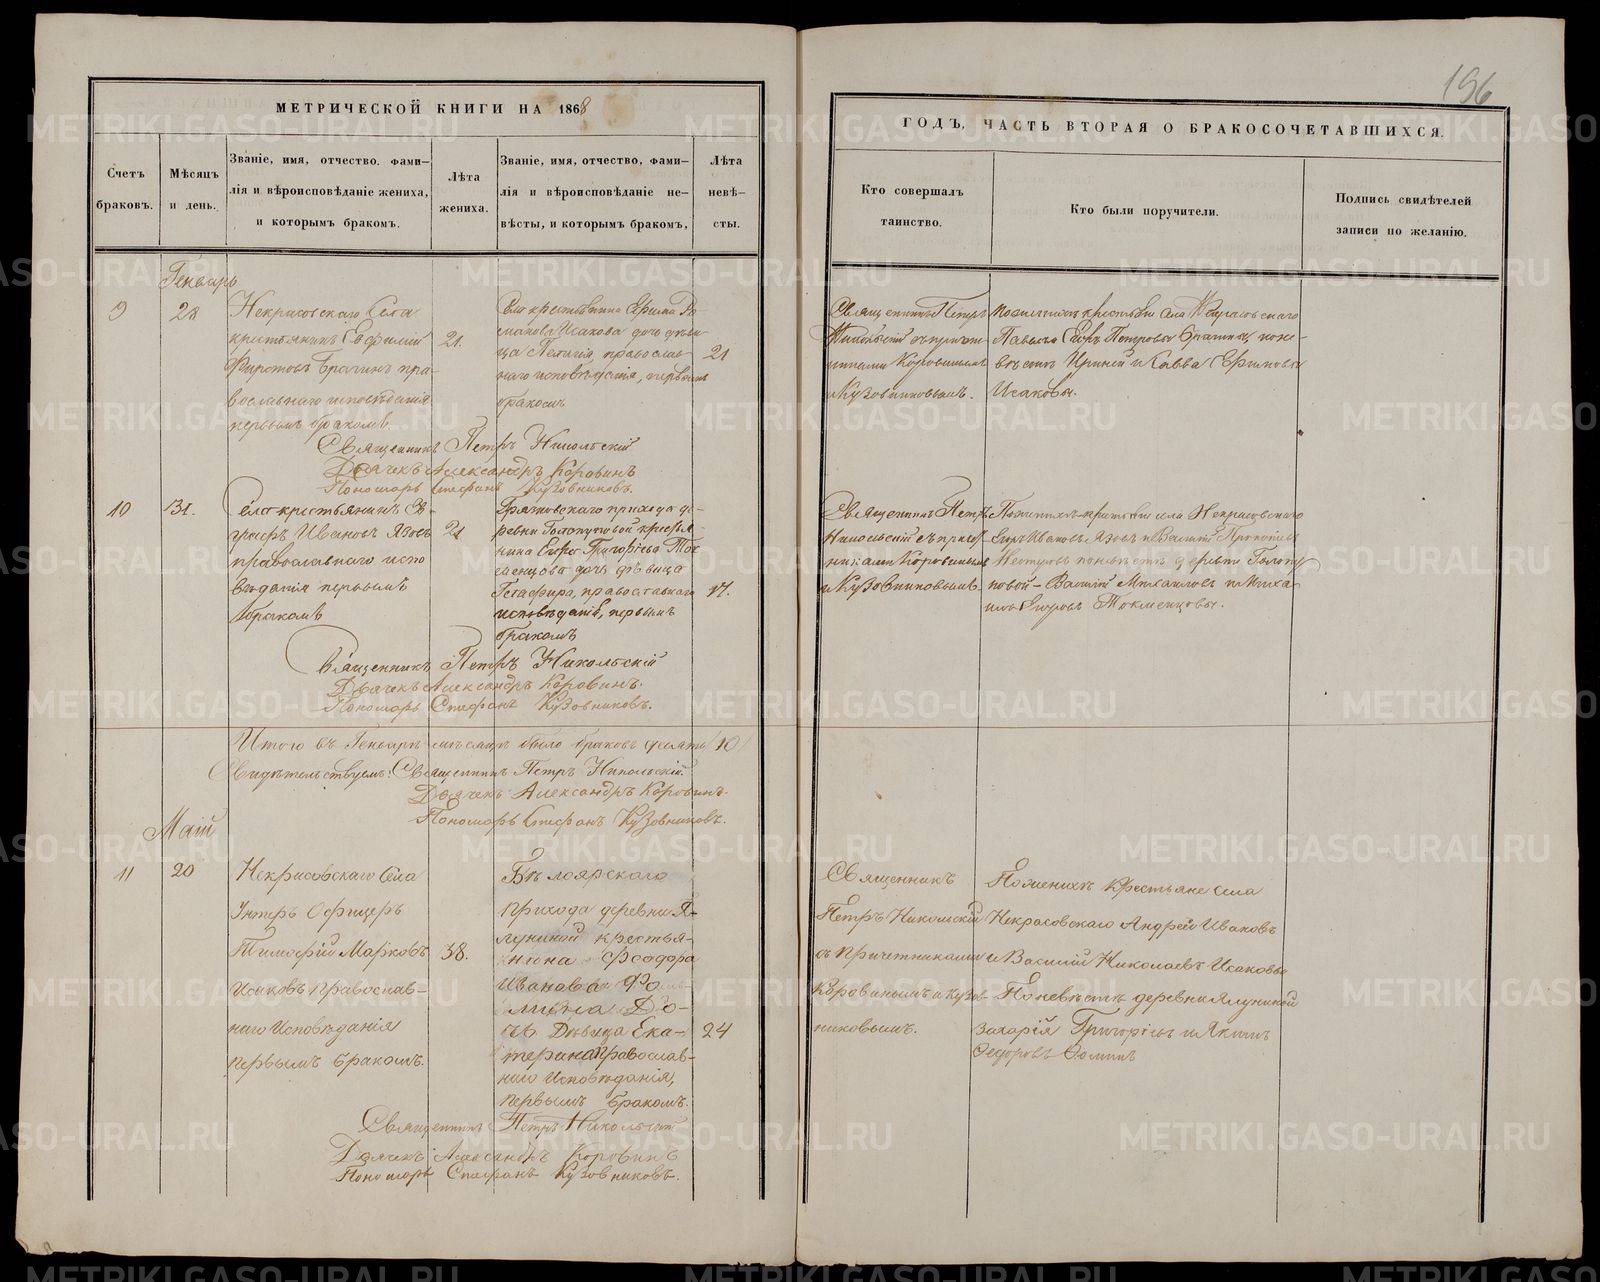 196
МЕТРИЧЕСКОЙ КНИГИ НА 1868
ГОДЪ, ЧАСТЬ ВТОРАЯ О БРАКОСОЧЕТАВШИХСЯ.
Счетъ
браковъ.
Мѣсяцъ
и день.
Званіе, имя, отчество. фами-
лія и вѣроисповѣданіе жениха,
и которымъ бракомъ.
Лѣта
жениха.
Званіе, имя, отчество, фами-
лія и вѣроисповѣданіе не-
вѣсты, и которымъ бракомъ,
Лѣта
невѣ-
сты.
Кто совершалъ
таинство.
Кто были поручители.
Подпись свидѣтелей
записи по желанію.
Генварь
9
28
Некрасовскаго Села
крестьянинъ Евфимій
Фирстовъ Брагинъ пра-
вославнаго исповѣданія
первымъ бракомъ
21.
дочь дѣви-
ца Пелагія, православ-
наго исповѣданія, первымъ
бракомъ
21
Священникъ Петръ
Никольскій съ причет-
никами Коровинымъ
и Кузовниковымъ.
По женихѣ крестьяне села Некрасовскаго
Павелъ Петровы Брагины, по не-
вѣстѣ и Савва Ефимовы
Исаковы.
Священникъ Петръ Никольскій
Дьячекъ Александръ Коровинъ
Пономарь Стефанъ Кузовниковъ.
10
31.
Села крестьянинъ Ев-
графъ Ивановъ Язовъ
православнаго испо
вѣданія первымъ
бракомъ
21
прихода де-
ревни Голопуповой кресть-
янина Егора Григорьева Ток-
менцова дочь дѣвица
Гетафира, православнаго
исповѣданія, первымъ
бракомъ
17.
Священникъ Петръ
Никольскій съ причет
никами Коровинымъ
и Кузовниковымъ.
По женихѣ крестьяне села Некрасовскаго
Егоръ Ивановъ Язовъ и Василій Прокопьевъ
по невѣстѣ деревни Голопу
повой - Василій Михаиловъ и Миха
илъ Егоровъ Токменцовы.
Священникъ Петръ Никольскій
Дьячекъ Александръ Коровинъ.
Пономарь Стефанъ Кузовниковъ.
Итого въ Генварѣ мѣсяцѣ было браковъ десять (10)
Свидѣтельствуемъ: Священникъ Петръ Никольскій
Дьячекъ Александръ Коровинъ.
Пономарь Стефанъ Кузовниковъ.
Май
11
20
Некрасовскаго Села
Унтеръ Офицеръ
Тимофій Марковъ
Исаковъ Православ-
наго Исповѣданія
первымъ бракомъ.
38.
Бѣлоярскаго
прихода деревни Я-
луниной крестья-
нина Феодора
Иванова Фо-
мина До-
чь Дѣвица Ека-
терина Православ-
наго Исповѣданія,
первымъ бракомъ.
24
Священникъ
Петръ Никольскій
съ Причетниками
Коровинымъ и Кузов-
никовымъ.
По женихѣ Крестьяне села
Некрасовскаго Андрей Ивановъ
и Василій Николаевъ Исаковы
По невѣстѣ деревни Ялуниной
Захарія Григорьевъ и Якимъ
Федоровъ Фомины
Священникъ Петръ Никольскій
Дьячекъ Александръ Коровинъ
Пономарь Стефанъ Кузовниковъ.
METRIKI.GASO-URAL.RU